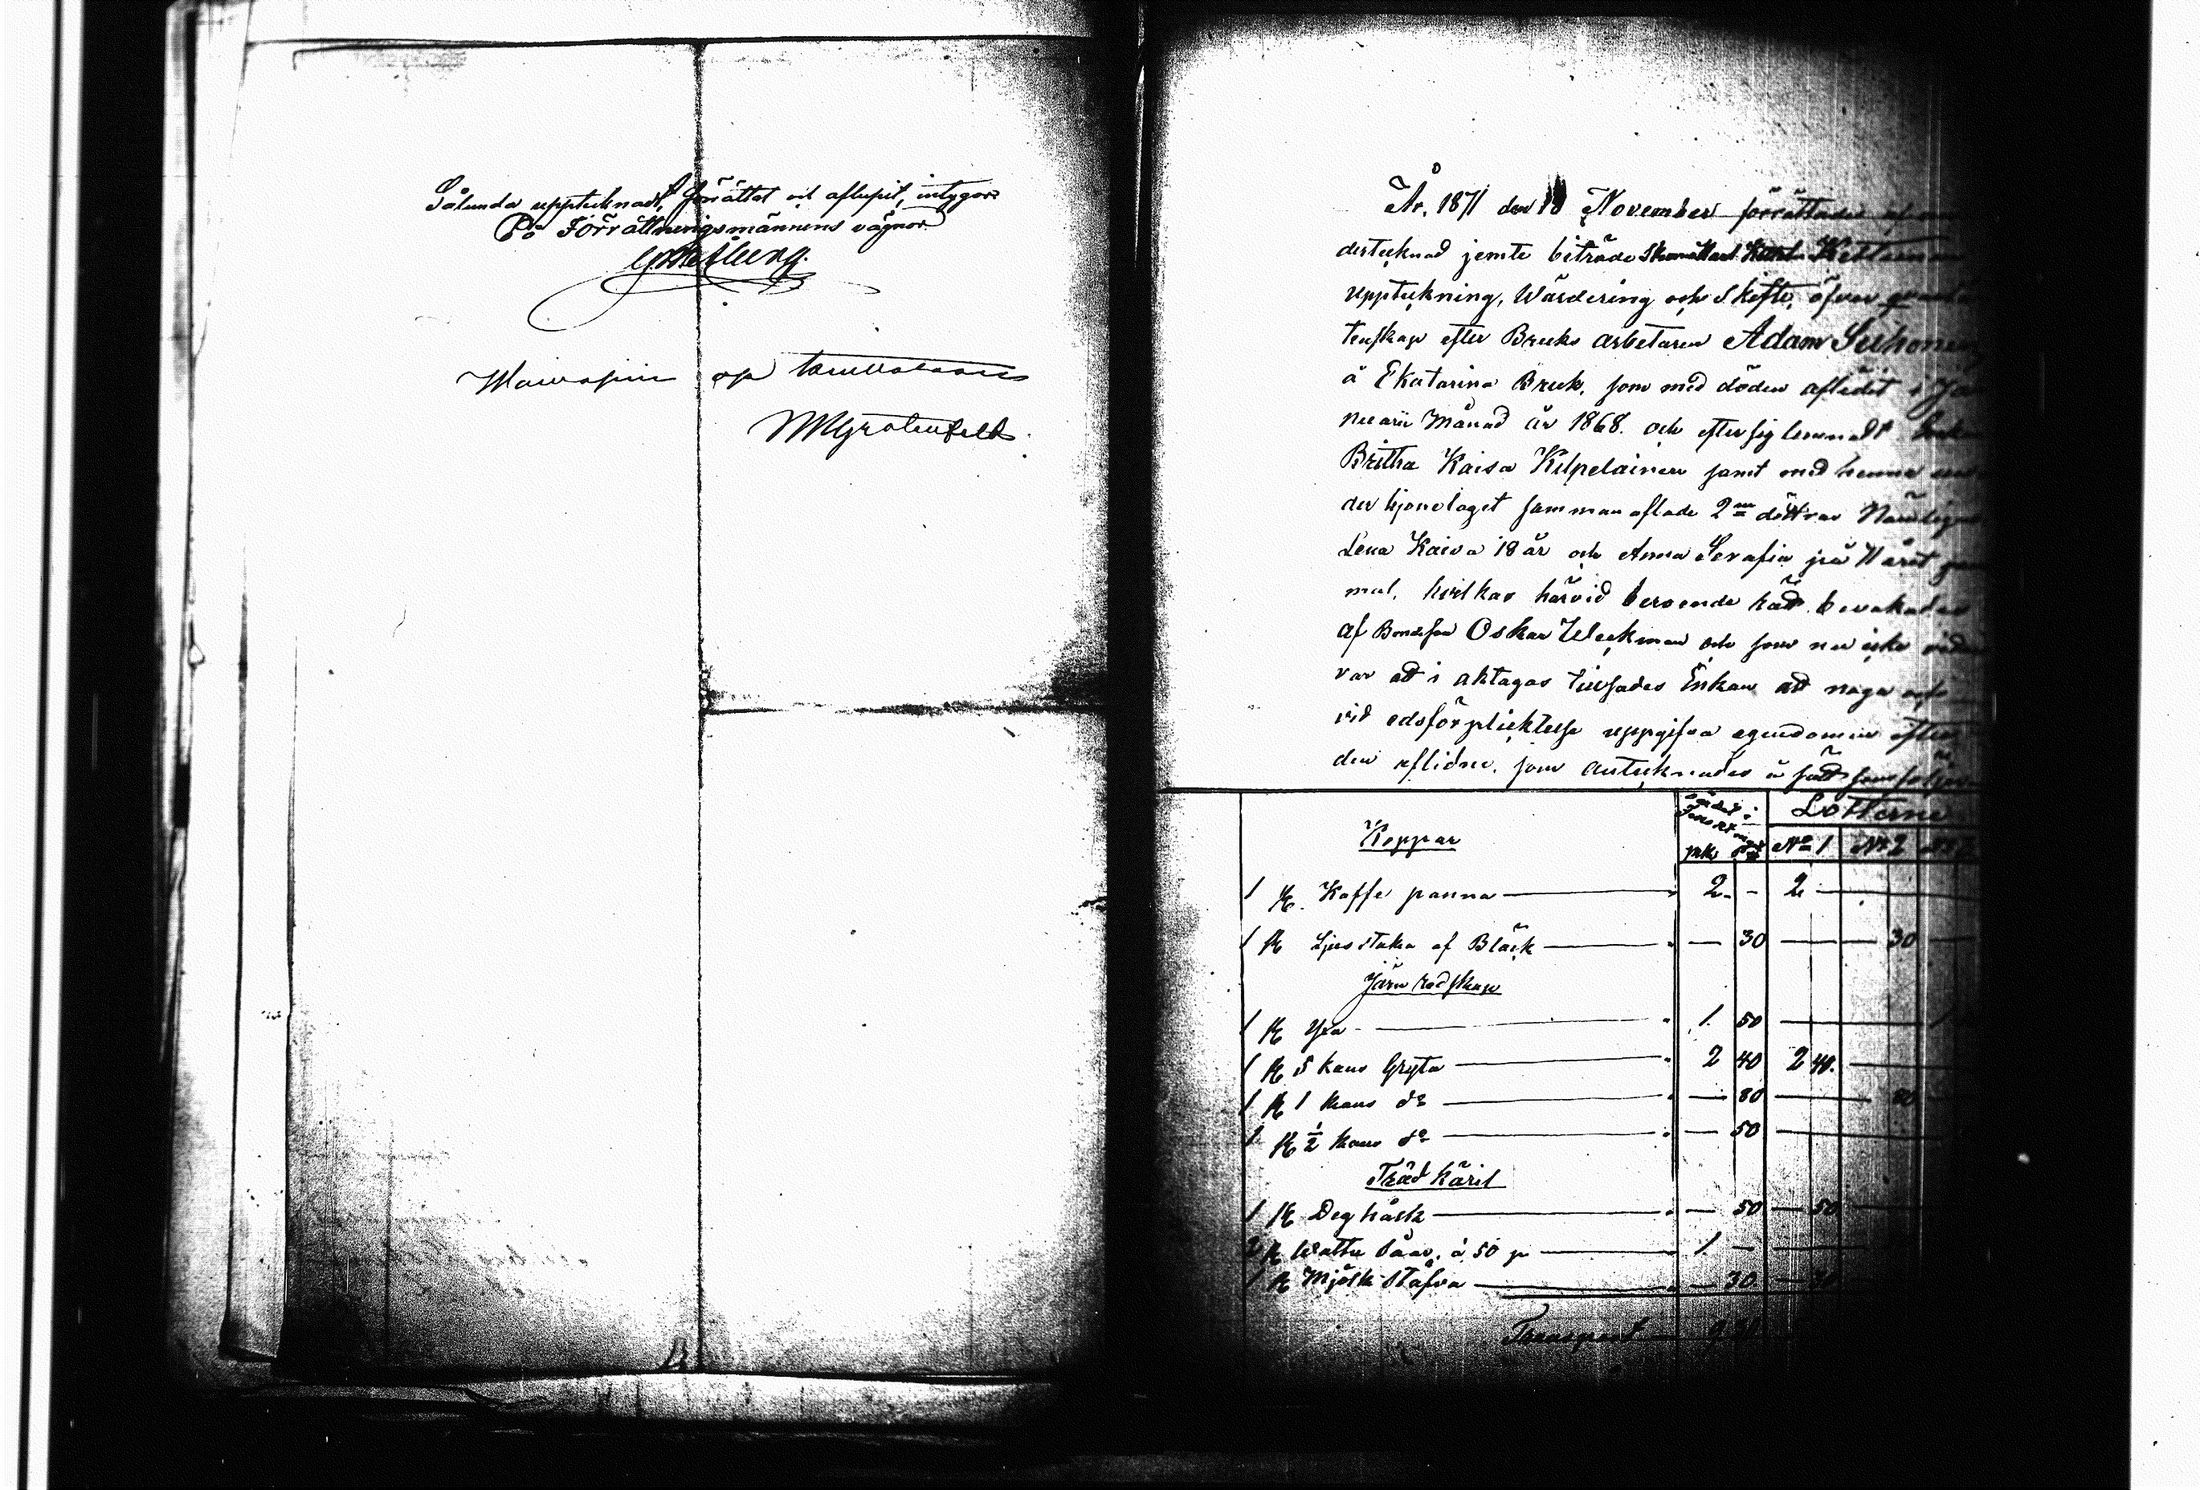 Sålunda upptecknadt, förrättat och aflupit, intygar
På Förrättningsmännens vägnar
År 1871 den 18 November förrättades af un
dertecknad jemte biträde
uppteckning, Wärdering och Skifte, öfver qvarlå
tenskap efter Bruks arbetaren Adam Seihonen
å Ekatarina Bruk, som med döden aflidit i Ja
nuarii Månad år 1868. och efter sig lemnadt Enkan
Britha Kaisa Kilpelainen samt med henne un
der hjonelaget sammanaflade 2ne döttrar Nämligen
Lena Kaisa 18 år och Anna Serafia på 11 året gam
mal, hvilkas härvid beroende rätt bevakades
af Bondeson Oskar Weckman och som nu icke vidare
var att i akttagas tillsades Enkan att noga och
vid edsförpliktelse uppgifva egendomen efter
den aflidne, som antecknades i sätt som följer
Koppar
Lotterne
mk No 1 No 2
1 st. Kaffe panna 2 - 2
1 st Ljusstaka af Bläck - 30 - 30
Järn redskap
1 st Yxa 1 50
1 st 5 kans Gryta 2 40 2 40
1 st 1 kans do - 80 80
1 st ½ kans do - 50
Träd Käril
1 st Deg håck - 50 - 50
2 st Watten såar, á 50 p 1 -
1 st Mjölk stäfva - 30 - 30
Transport